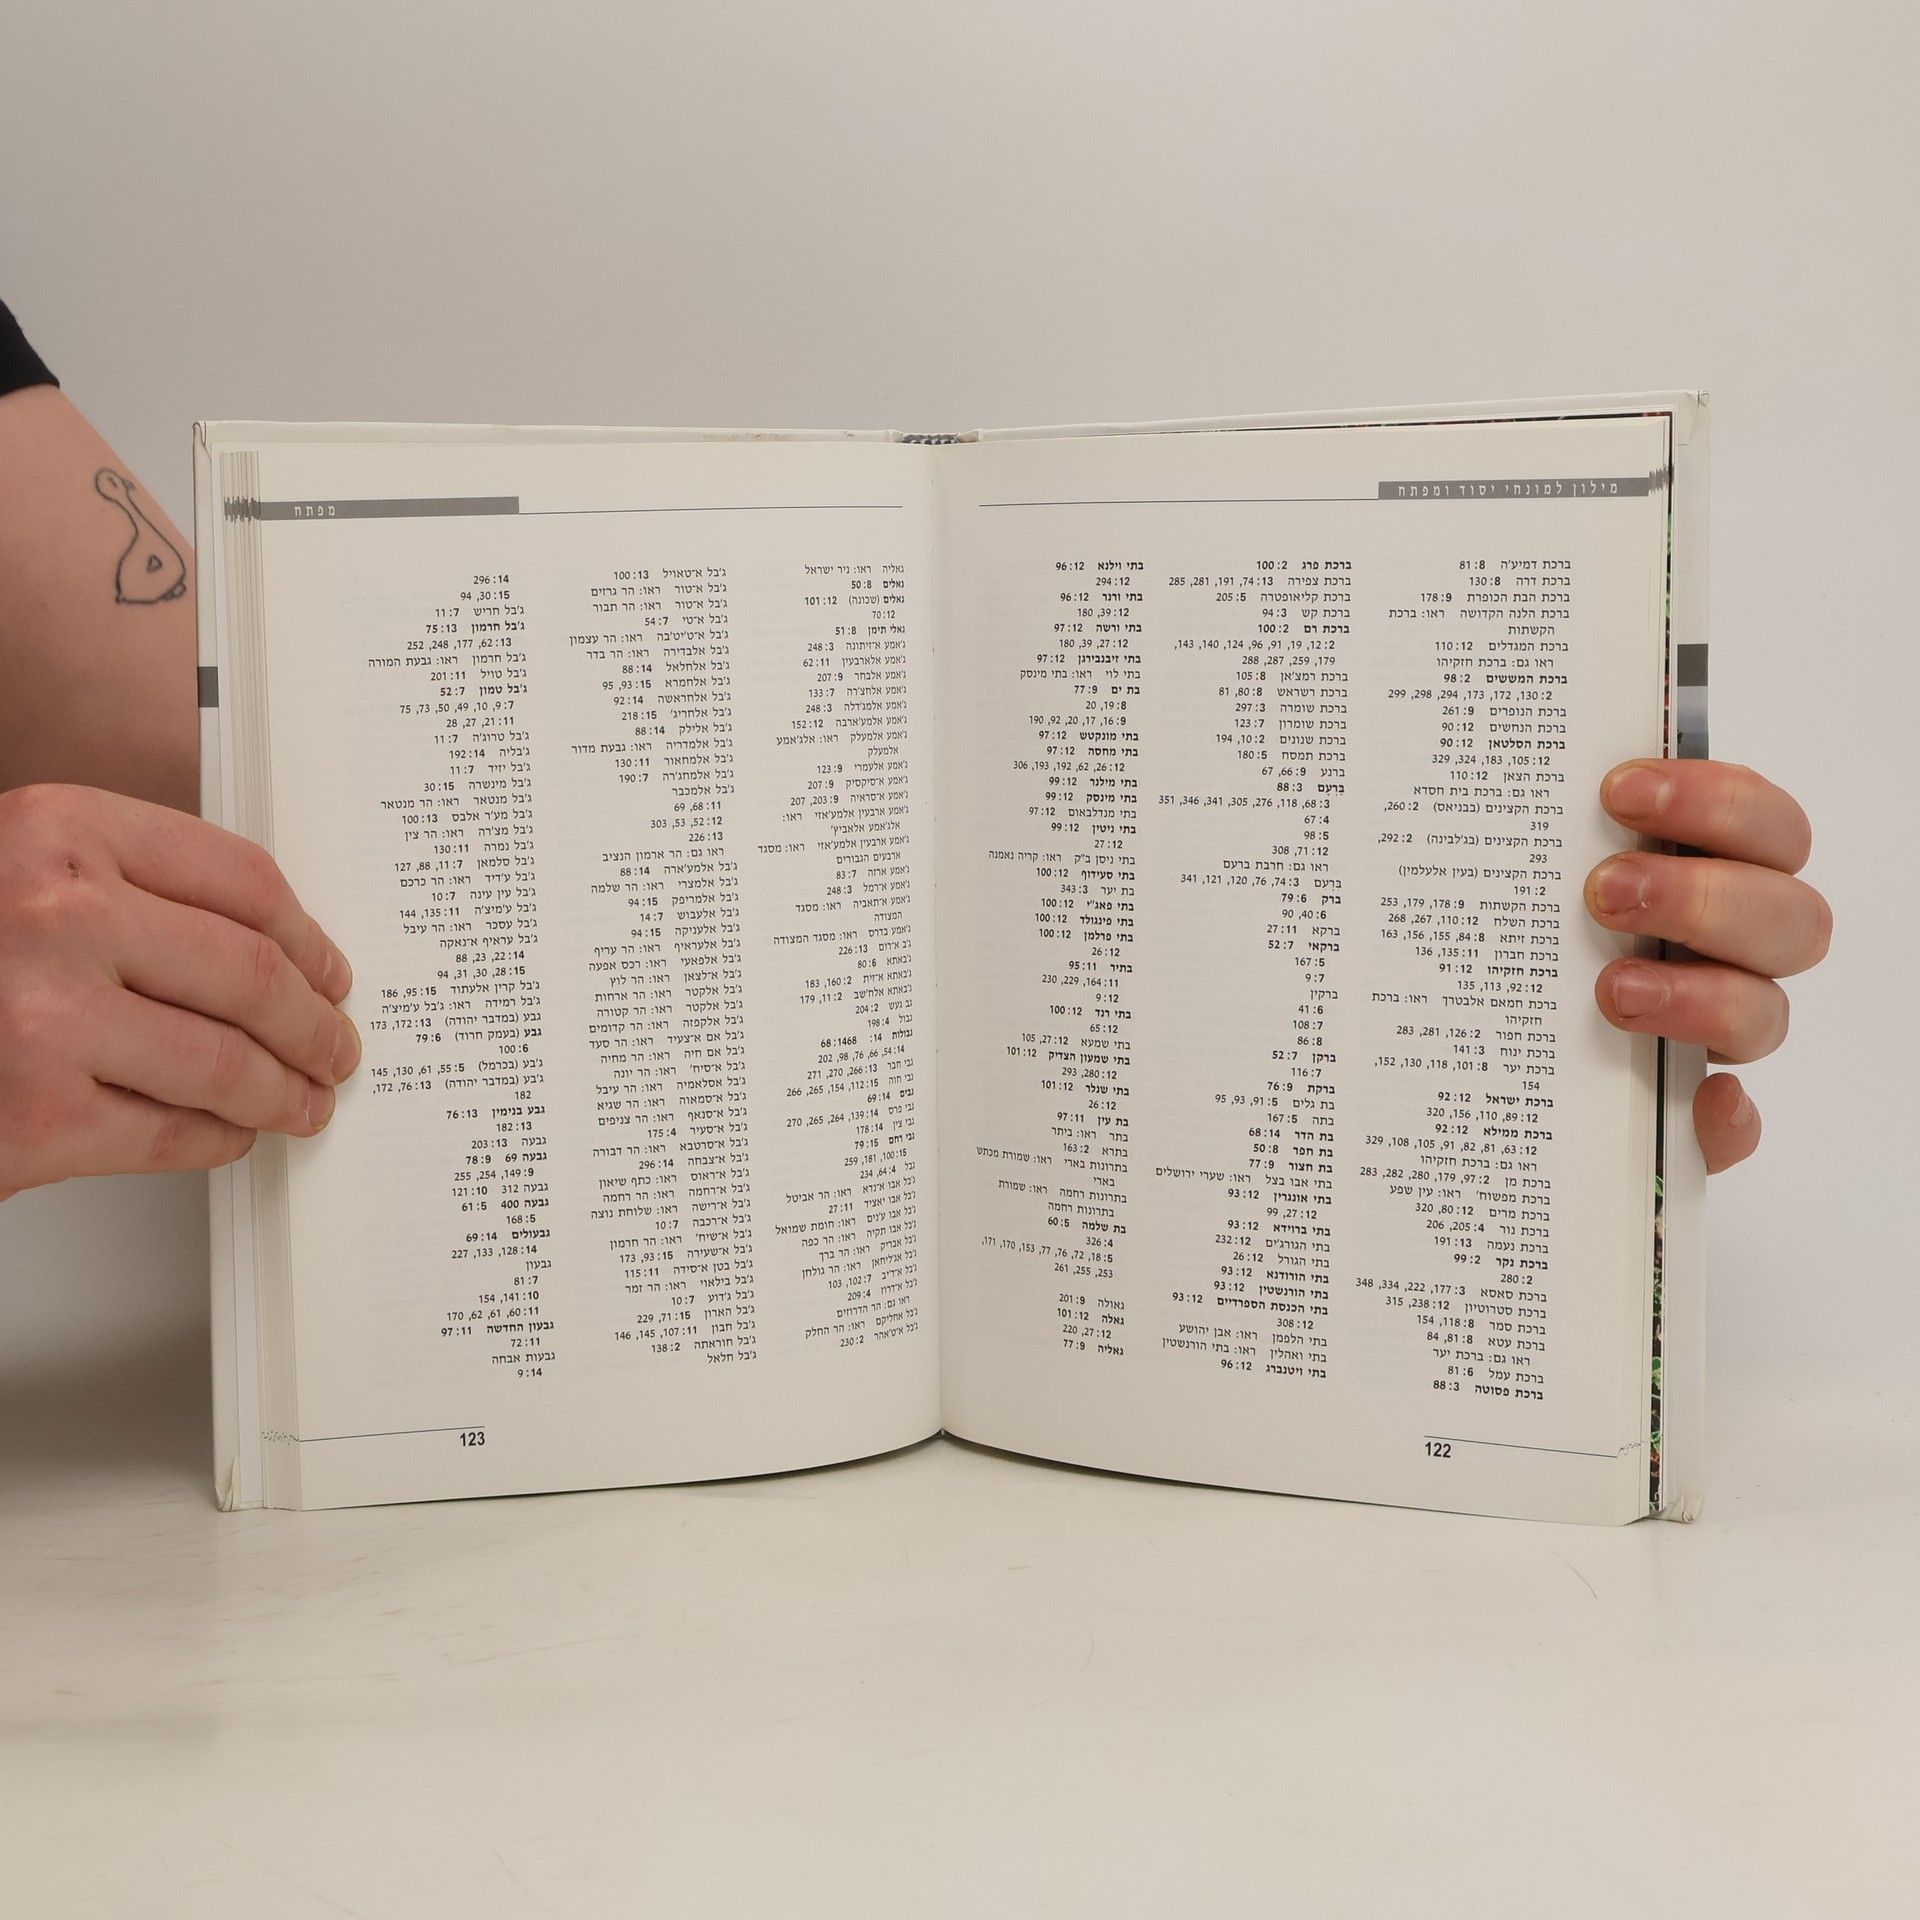 מילון למונחי יסוד ומפתח
ברכת דמיע'ה 8: 81
ברכת דרה 8: 130
ברכת הבת הכופרת 9: 178
ברכת הלנה הקדושה ראו: ברכת
הקשתות
ברכת המגדלים 12: 110
ראו גם: ברכת חזקיהו
ברכת המששים 2: 98
2: 130, 172, 173, 294, 298, 299
ברכת הנופרים 9: 261
ברכת הנחשים 12: 90
ברכת הסלטאן 12: 90
12: 105, 183, 324, 329
ברכת הצאן 12: 110
ראו גם: ברכת בית חסדא
ברכת הקצינים (בבניאס) 2: 260,
319
ברכת הקצינים (בג'לבינה) 2: 292,
293
ברכת הקצינים (בעין אלעלמין)
2: 191
ברכת הקשתות 9: 178, 179, 253
ברכת השלח 12: 110, 267, 268
ברכת זיתא 8: 84, 155, 156, 163
ברכת חברון 11: 135, 136
ברכת חזקיהו 12: 91
12: 92, 113, 135
ברכת חמאם אלבטרך ראו: ברכת
חזקיהו
ברכת חפור 2: 126, 281, 283
ברכת ינוח 3: 141
ברכת יער 8: 101, 118, 130, 152,
154
ברכת ישראל 12: 92
12: 89, 110, 156, 320
ברכת ממילא 12: 92
12: 63, 81, 82, 91, 105, 108, 329
ראו גם: ברכת חזקיהו
ברכת מן 2: 97, 179, 280, 282, 283
ברכת מפשוח' ראו: עין שפע
ברכת מרים 12: 80, 320
ברכת נור 4: 205, 206
ברכת נעמה 13: 191
ברכת נקר 2: 99
2: 280
ברכת סאסא 3: 177, 222, 334, 348
ברכת סטרוטיון 12: 238, 315
ברכת סמר 8: 118, 154
ברכת עטא 8: 81, 84
ראו גם: ברכת יער
ברכת עמל 6: 81
ברכת פסוטה 3: 88
ברכת פרג 2: 100
ברכת צפירה 13: 74, 191, 281, 285
ברכת קליאופטרה 5: 205
ברכת קש 3: 94
ברכת רם 2: 100
2: 12, 19, 91, 96, 124, 140, 143,
179, 259, 287, 288
ברכת רמצ'אן 8: 105
ברכת רשראש 8: 80, 81
ברכת שומרה 3: 297
ברכת שומרון 7: 123
ברכת שנונים 2: 10, 194
ברכת תמסח 5: 180
ברנע 9: 66, 67
ברעם 3: 88
3: 68, 118, 276, 305, 341, 346, 351
4: 67
5: 98
12: 71, 308
ראו גם: חרבת ברעם
ברעם 3: 74, 76, 120, 121, 341
ברק 6: 79
6: 40, 90
ברקא 11: 27
ברקאי 7: 52
5: 167
7: 9
ברקין
6: 41
7: 108
8: 86
ברקן 7: 52
7: 116
ברקת 9: 76
בת גלים 5: 91, 93, 95
בתה 5: 167
בת הדר 14: 68
בת חפר 8: 50
בת חצור 9: 77
בתי אבו בצל ראו: שערי ירושלים
בתי אונגרין 12: 93
12: 27, 99
בתי ברוידא 12: 93
בתי הגורג'ים 12: 232
בתי הגורל 12: 26
בתי הורודנא 12: 93
בתי הורנשטין 12: 93
בתי הכנסת הספרדיים 12: 93
12: 308
בתי הלפמן ראו: אבן יהושע
בתי ואהלין ראו: בתי הורנשטין
בתי ויטנברג 12: 96
בתי וילנא 12: 96
12: 294
בתי ורנר 12: 96
12: 39, 180
בתי ורשה 12: 97
12: 27, 39, 180
בתי זיבנבירגן 12: 97
בתי לוי ראו: בתי מינסק
בת ים 9: 77
8: 19, 20
9: 16, 17, 20, 92, 190
בתי מונקטש 12: 97
בתי מחסה 12: 97
12: 26, 62, 192, 193, 306
בתי מילנר 12: 99
בתי מינסק 12: 99
בתי מנדלבאום 12: 97
בתי ניטין 12: 99
12: 27
בתי ניסן ב"ק ראו: קריה נאמנה
בתי סעידוף 12: 100
בת יער 3: 343
בתי פאג'י 12: 100
בתי פינגולד 12: 100
בתי פרלמן 12: 100
12: 26
בתיר 11: 95
11: 164, 229, 230
12: 9
בתי רנד 12: 100
12: 65
בתי שמעא 12: 27, 105
בתי שמעון הצדיק 12: 101
12: 280, 293
בתי שנלר 12: 101
12: 26
בת עין 11: 97
בתר ראו: ביתר
בתרא 2: 163
בתרונות בארי ראו: שמורת מכתש
בארי
בתרונות רחמה ראו: שמורת
בתרונות רחמה
בת שלמה 5: 60
4: 326
5: 18, 72, 76, 77, 153, 170, 171,
253, 255, 261
גאולה 9: 201
גאלה 12: 101
12: 27, 220
גאליה 9: 77
122
מפתח
גאליה ראו: ניר ישראל
גאלים 8: 50
גאלים (שכונה) 12: 101
12: 70
גאלי תימן 8: 51
ג'אמע א־זיתונה 3: 248
ג'אמע אלארבעין 11: 62
ג'אמע אלבחר 9: 207
ג'אמע אלחצ'רה 7: 133
ג'אמע אלמג'דלה 3: 248
ג'אמע אלמע'ארבה 12: 152
ג'אמע אלמעלק ראו: אלג'אמע
אלמעלק
ג'אמע אלעמרי 9: 123
ג'אמע א־סיקסיק 9: 207
ג'אמע א־סראיה 9: 203, 207
ג'אמע ארבעין אלמע'אזי ראו:
אלג'אמע אלאביץ'
ג'אמע ארבעין אלמע'אזי ראו: מסגד
ארבעים הגבורים
ג'אמע ארזה 7: 83
ג'אמע א־רמל 3: 248
ג'אמע א־תאביה ראו: מסגד
המצודה
ג'אמע ברדס ראו: מסגד המצודה
ג'ב א־רום 13: 226
ג'באתא 6: 80
ג'באתא א־זית 2: 160, 183
ג'באתא אלח'שב 2: 11, 179
גב געש 2: 204
גבול 4: 198
גבולות 14: 68:1468
14: 54, 66, 76, 98, 202
גבי חבר 13: 266, 270, 271
גבי חוה 15: 112, 154, 265, 266
גבים 14: 69
גבי פרס 14: 139, 264, 265, 270
גבי צין 14: 178
גבי רחם 15: 79
15: 100, 181, 259
גבל 4: 64, 234
ג'בל אבו א־נדא ראו: הר אביטל
ג'בל אבו יאציד 11: 27
ג'בל אבו ע'נים ראו: חומת שמואל
ג'בל אבו תקיה ראו: הר כפה
ג'בל אבריק ראו: הר ברך
ג'בל אג'ליחאן ראו: הר גולחן
ג'בל א־דיב 7: 102, 103
ג'בל א־דרוז 4: 209
ראו גם: הר הדרוזים
ג'בל אחליקם ראו: הר החלק
ג'בל א־ט'אהר 2: 230
ג'בל א־טאויל 13: 100
ג'בל א־טור ראו: הר גרזים
ג'בל א־טור ראו: הר תבור
ג'בל א־טי 7: 54
ג'בל א־טי'טי'בה ראו: הר עצמון
ג'בל אלבדירה ראו: הר בדר
ג'בל אלחלאל 14: 88
ג'בל אלחמרא 15: 93, 95
ג'בל אלחראשה 14: 92
ג'בל אלחריג' 15: 218
ג'בל אלילק 14: 88
ג'בל אלמדריה ראו: גבעת מדור
ג'בל אלמחאור 11: 130
ג'בל אלמחג'רה 7: 190
ג'בל אלמכבר
11: 68, 69
12: 52, 53, 303
13: 226
ראו גם: הר ארמון הנציב
ג'בל אלמע'ארה 14: 88
ג'בל אלמצרי ראו: הר שלמה
ג'בל אלמריפק 15: 94
ג'בל אלעבוש 7: 14
ג'בל אלעניקה 15: 94
ג'בל אלעראיף ראו: הר עריף
ג'בל אלפאעי ראו: רכס אפעה
ג'בל א־לצאן ראו: הר לוץ
ג'בל אלקטר ראו: הר ארחות
ג'בל אלקטר ראו: הר קטורה
ג'בל אלקפזה ראו: הר קדומים
ג'בל אם א־צעיד ראו: הר סעד
ג'בל אם חיה ראו: הר מחיה
ג'בל א־סיח' ראו: הר יונה
ג'בל אסלאמיה ראו: הר עיבל
ג'בל א־סמאוה ראו: הר שגיא
ג'בל א־סנאף ראו: הר צניפים
ג'בל א־סעיר 4: 175
ג'בל א־סרטבא ראו: הר דבורה
ג'בל א־צבחה 14: 296
ג'בל א־ראוס ראו: כתף שיאון
ג'בל א־רחמה ראו: הר רחמה
ג'בל א־רישה ראו: שלוחת נוצה
ג'בל א־רכבה 7: 10
ג'בל א־שיח' ראו: הר חרמון
ג'בל א־שעירה 15: 93, 173
ג'בל בטן א־סידה 11: 115
ג'בל בילאוי ראו: הר זמר
ג'בל ג'דוע 7: 10
ג'בל הארון 15: 71, 229
ג'בל חבון 11: 107, 145, 146
ג'בל חוראתה 2: 138
ג'בל חלאל
14: 296
15: 30, 94
ג'בל חריש 7: 11
ג'בל חרמון 13: 75
13: 62, 177, 248, 252
ג'בל חרמון ראו: גבעת המורה
ג'בל טויל 11: 201
ג'בל טמון 7: 52
7: 9, 10, 49, 50, 73, 75
11: 21, 27, 28
ג'בל טרוג'ה 7: 11
ג'בליה 14: 192
ג'בל יזיד 7: 11
ג'בל מינשרה 15: 30
ג'בל מנטאר ראו: הר מנטאר
ג'בל מע'ר אלבס 13: 100
ג'בל מצ'רה ראו: הר צין
ג'בל נמרה 11: 130
ג'בל סלמאן 7: 11, 88, 127
ג'בל ע'דיד ראו: הר כרכם
ג'בל עין עינה 7: 10
ג'בל ע'מיצ'ה 11: 135, 144
ג'בל עסכר ראו: הר עיבל
ג'בל עראיף א־נאקה
14: 22, 23, 88
15: 28, 30, 31, 94
ג'בל קרין אלעתוד 15: 95, 186
ג'בל רמידה ראו: ג'בל ע'מיצ'ה
גבע (במדבר יהודה) 13: 172, 173
גבע (בעמק חרוד) 6: 79
6: 100
ג'בע (בכרמל) 5: 55, 61, 130, 145
ג'בע (במדבר יהודה) 13: 76, 172,
182
גבע בנימין 13: 76
13: 182
גבעה 13: 203
גבעה 69 9: 78
9: 149, 254, 255
גבעה 312 10: 121
גבעה 400 5: 61
5: 168
גבעולים 14: 69
14: 128, 133, 227
גבעון
7: 81
10: 141, 154
11: 60, 61, 62, 170
גבעון החדשה 11: 97
11: 72
גבעות אבחה
14: 9
123